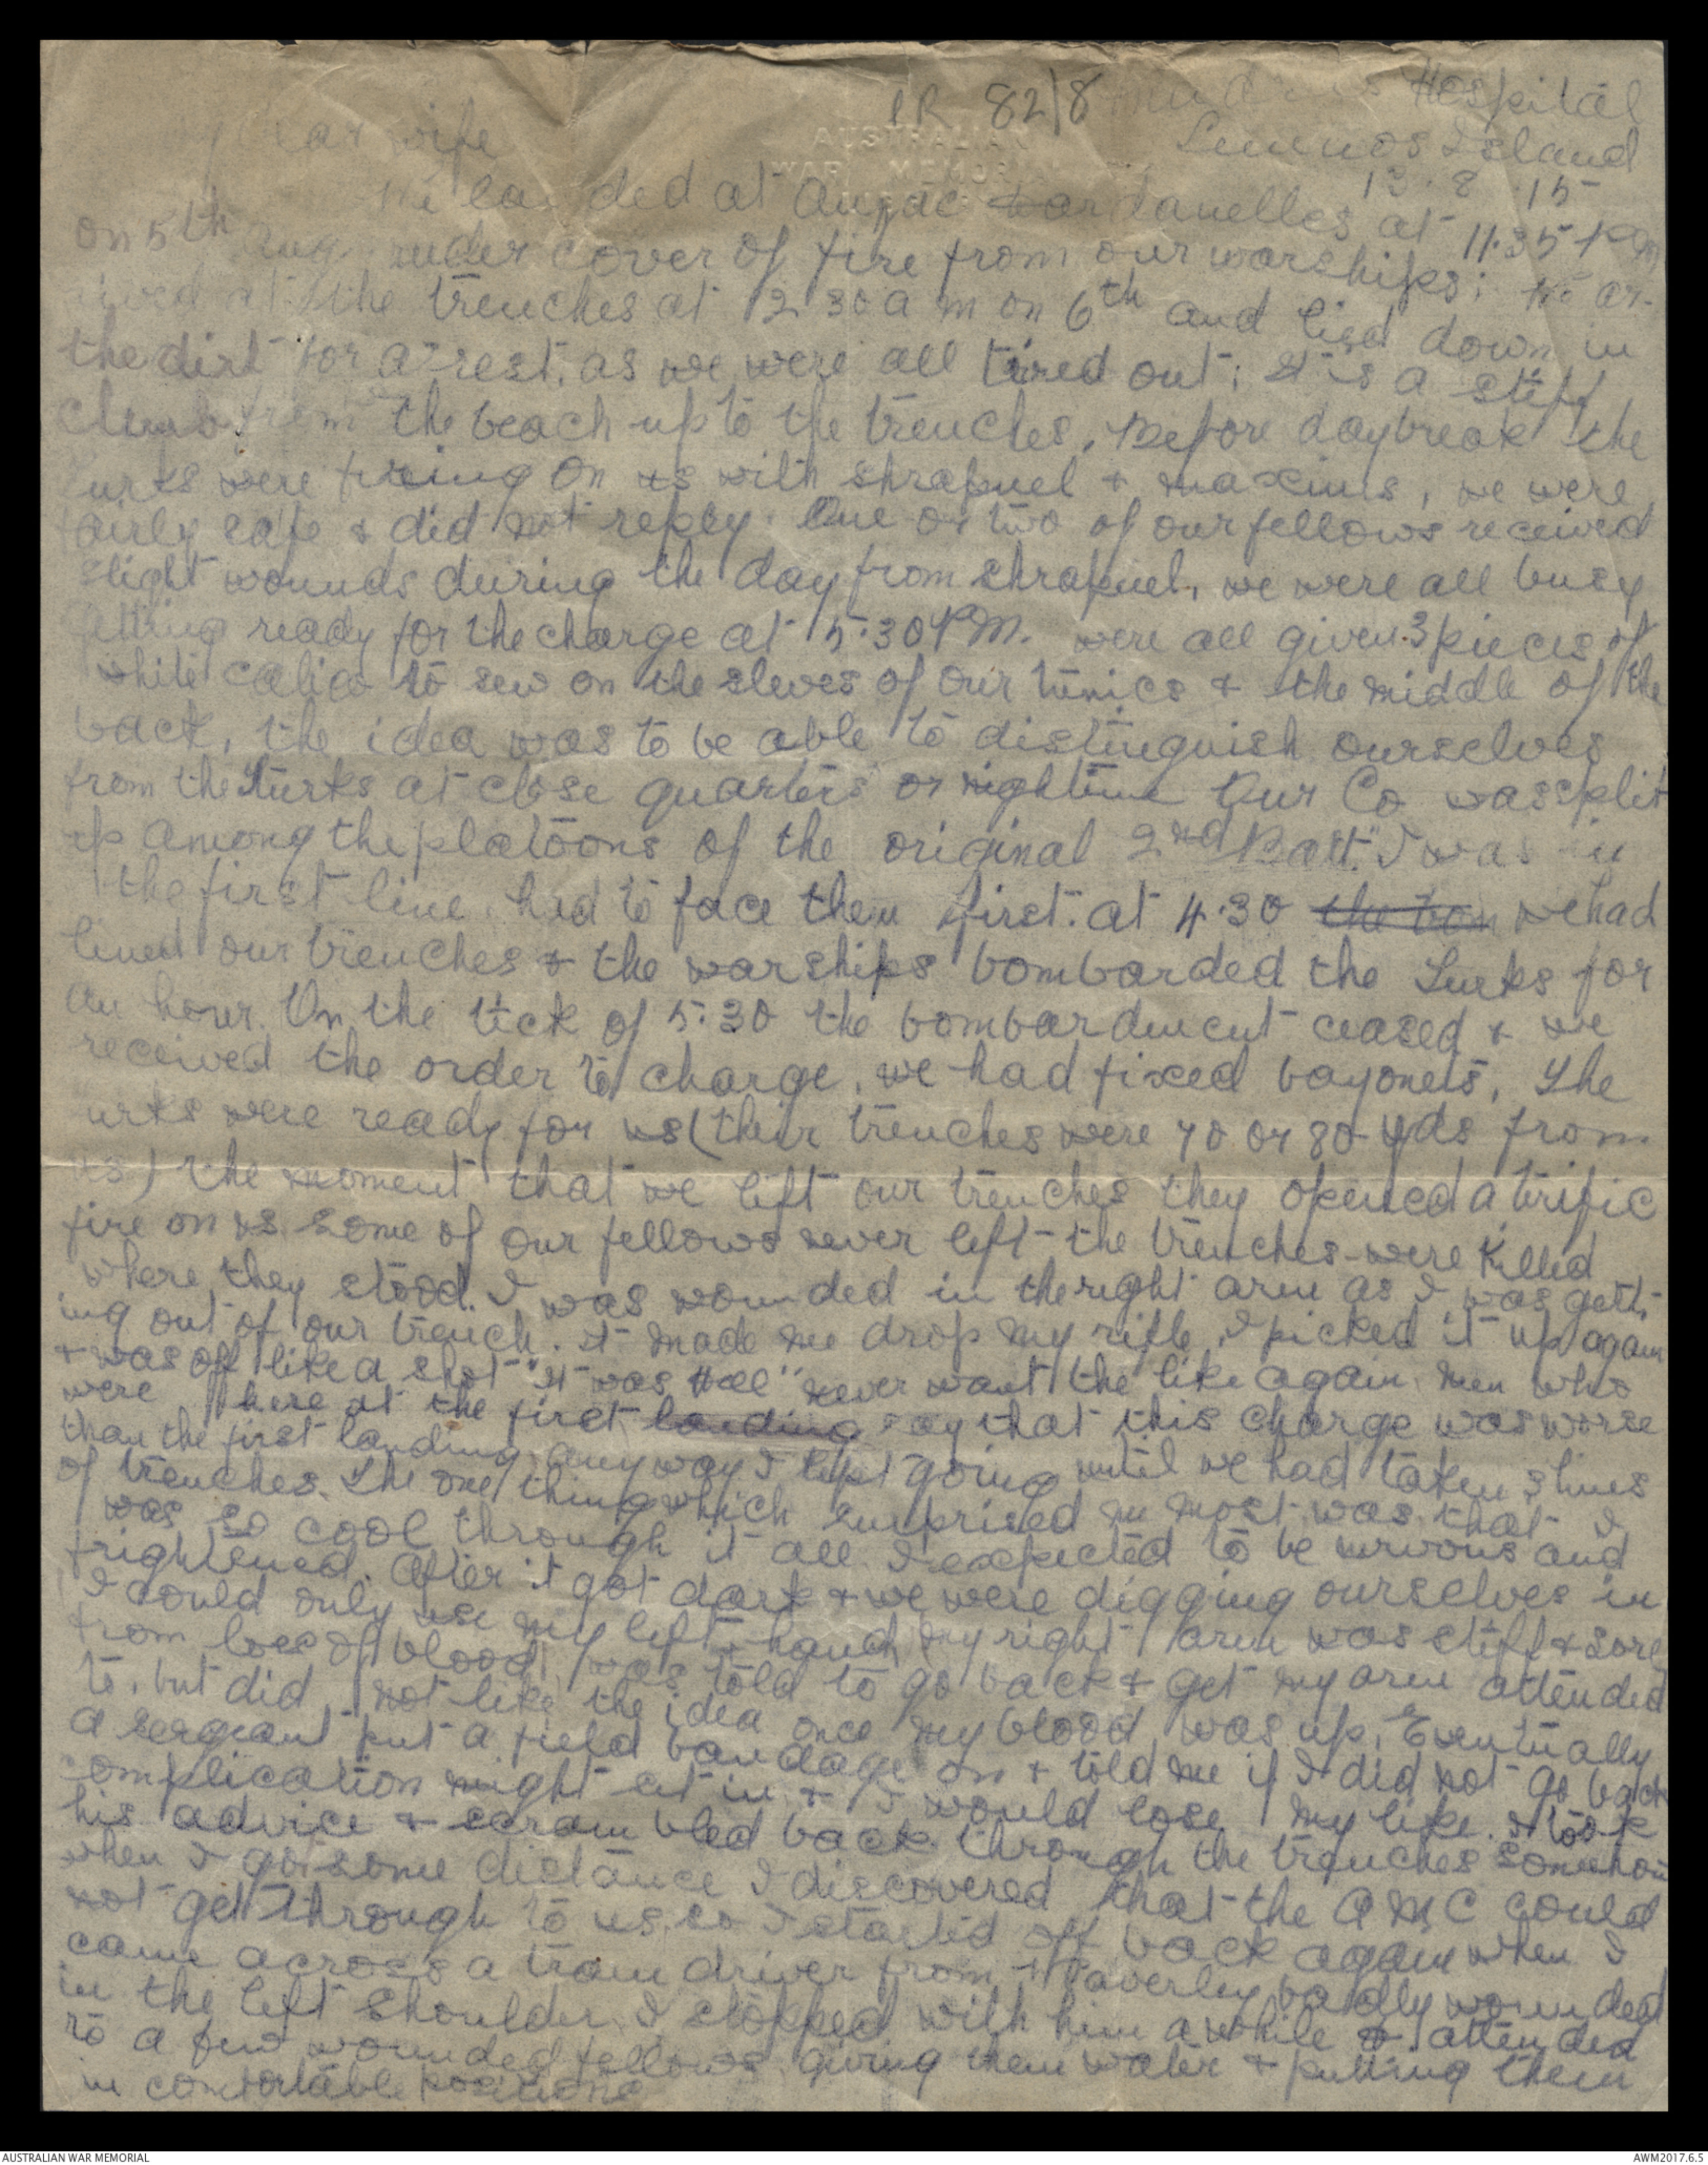 1R 82/8 Mudros Hospital
Lemnos Island
My Dear wife
13. 8. 15
AUSTRALIAN
WAR MEMORIAL
We landed at Anzac Dardanelles at 11.35 PM
on 5th Aug under cover of fire from our warships; We ar-
rived at the trenches at 12 30 a m on 6th and lied down in
the dirt for a rest, as we were all tired out; It is a stiff
climb from the beach up to the trenches, Before daybreak the
Turks were fireing on us with shrapnel & maxims, we were
fairly safe & did not reply. One or two of our fellows received
slight wounds during the day from shrapnel, we were all busy
getting ready for the charge at 5.30 PM. were all given 3 pieces of
white calico to sew on the sleves of our tunics & the middle of the
back, the idea was to be able to distinguish ourselves
from the Turks at close quarters or nightime Our Co was split
up among the platoons of the original 2nd Batt. I was in
the first line. had to face them first. at 4.30 the bom we had
lined our trenches & the warships bombarded the Turks for
an hour. On the tick of 5.30 the bombardment ceased & we
received the order to charge, we had fixed bayonets, The
Turks were ready for us (their trenches were 70 or 80 yds from
us) the moment that we left our trenches they opened a trific
fire on us some of our fellows never left the trenches - were killed
where they stood. I was wounded in the right arm as I was gett-
ing out of our trench. it made me drop my rifle, I picked it up again
& was off like a shot "it was Hell" never want the like again. Men who
were here at the first landing say that this charge was worse
than the first landing, any way I kept going until we had taken 3 lines
of trenches. The one thing which surprised me most was that I
was so cool through it all. I expected to be nervous and
frightened. After it got dark & we were digging ourselves in
I could only use my left hand, my right arm was stiff & sore
from loss of blood, I was told to go back & get my arm attended
to, but did not like the idea once my blood was up, Eventually
a sergeant put a field bandage on & told me if I did not go back
complication might set in & I would lose my life. I took
his advice & scrambled back through the trenches somehow
when I got some distance I discovered that the A M C could
not get through to us, so I started off back again when I
came across a tram driver from Waverley badly wounded
in the left shoulder, I stopped with him a while & attended
to a few wounded fellows, giving them water & putting them
in comfortable positions
AUSTRALIAN WAR MEMORIAL
AWM2017.6.5